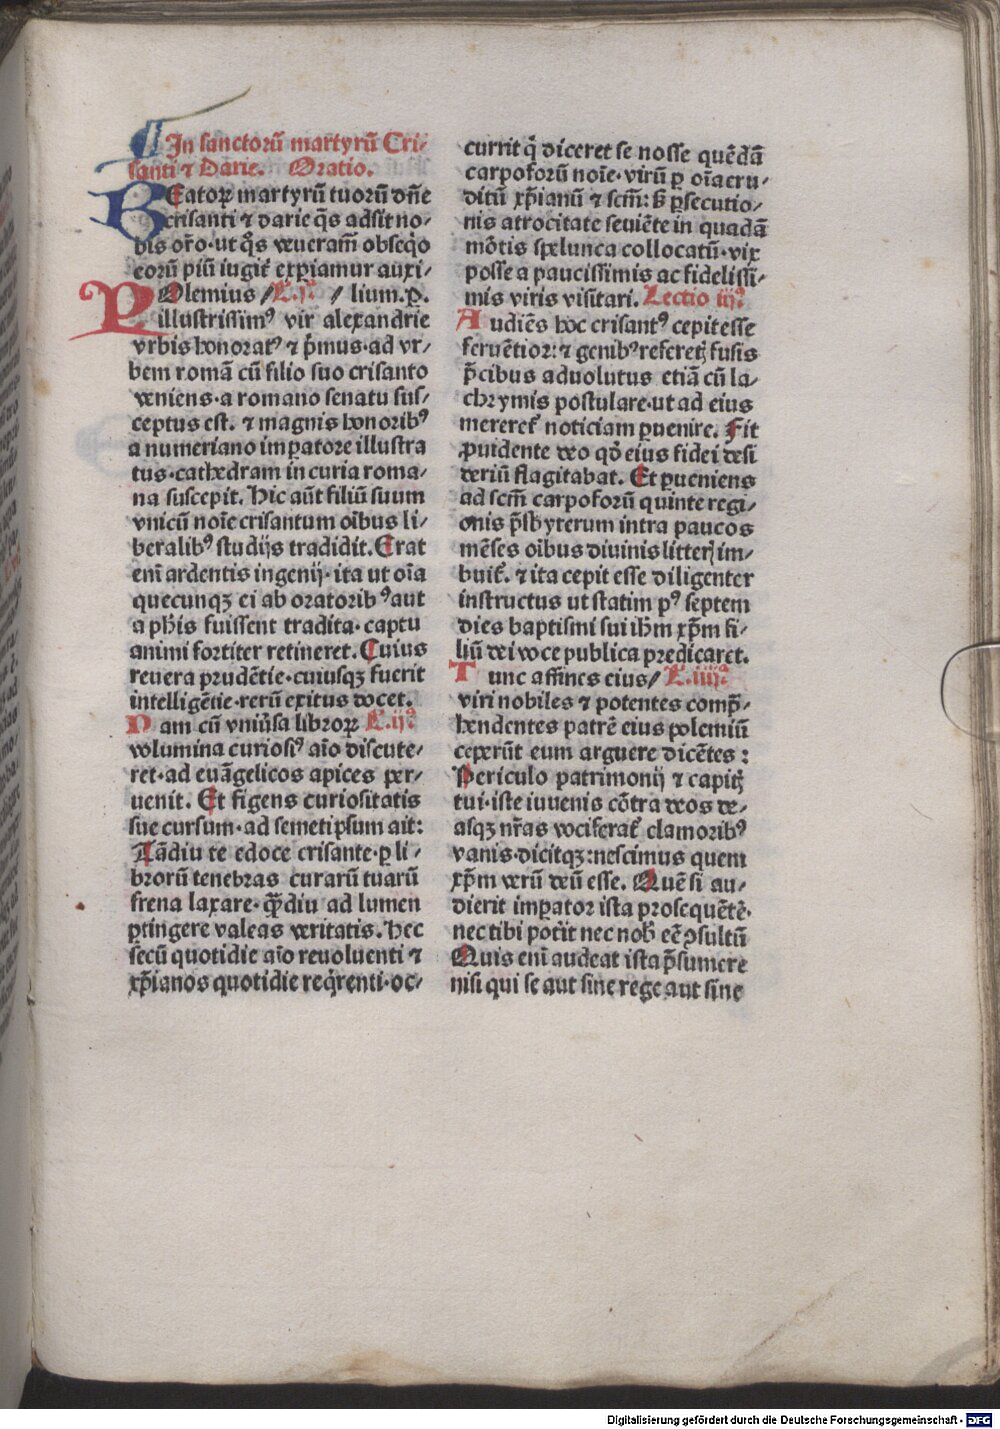 In sanctorū martyrū Cri⸗
santi ⁊ Darie. Oratio.
BEatoꝝ martyrū tuorū dn̄e
crisanti ⁊ darie q̄s adsit no⸗
bis or̄o·ut q̄s veneram̄ obseq̇o
eorū piū iugit̓ expiamur auxi⸗
POlemius / L.j.ᵃ / lium.ꝑ.
illustrissimꝰ vir alexandrie
vrbis honoratꝰ ⁊ p̄mus·ad vr⸗
bem romā cū filio suo crisanto
veniens·a romano senatu sus⸗
ceptus est. ⁊ magnis honoribꝰ
a numeriano imꝑatore illustra
tus·cathedram in curia roma⸗
na suscepit. Hic aūt filiū suum
vnicū noīe crisantum oībus li⸗
beralibꝰ studijs tradidit. Erat
enī ardentis ingenij· ita ut oīa
quecunqꝫ ei ab oratoribꝰ aut
a ph̄is fuissent tradita· captu
animi fortiter retineret. Cuius
reuera prudētie·cuiusqꝫ fuerit
intelligētie·rerū exitus docet.
Nam cū vniu̓sa libroꝝ L.ij.ᵃ
volumina curiosiꝰ aīo discute⸗
ret·ad euāgelicos apices per⸗
uenit. Et figens curiositatis
sue cursum·ad semetipsum ait:
Tādiu te edoce crisante·ꝑ li⸗
brorū tenebras curarū tuarū
frena laxare·q̄ȝdiu ad lumen
ꝑtingere valeas veritatis. Hec
secū quotidie aīo reuoluenti ⁊
xp̄ianos quotidie req̇renti·oc⸗
currit q̇ diceret se nosse quēdā
carpoforū noīe·virū ꝑ oīa eru⸗
ditū xp̄ianū ⁊ scm̄: s̄ ꝑsecutio⸗
nis atrocitate seuiēte in quadā
mōtis spelunca collocatū·vix
posse a paucissimis ac fidelissi⸗
mis viris visitari. Lectio iij.ᵃ
Audiēs hoc crisantꝰ cepit esse
feruētior: ⁊ genibꝰ referetꝭ fusis
p̄cibus aduolutus etiā cū la⸗
chrymis postulare·ut ad eius
mereret̓ noticiam ꝑuenire. Fit
ꝓuidente deo qd̓ eius fidei desi
deriū flagitabat. Et ꝑueniens
ad scm̄ carpoforū quinte regi⸗
onis p̄sbyterum intra paucos
mēses oībus diuinis litterꝭ im⸗
buit̓. ⁊ ita cepit esse diligenter
instructus ut statim pꝰ septem
dies baptismi sui ih̄m xp̄m fi⸗
liū dei voce publica predicaret.
Tunc affines eius/ L.iiij.ᵃ
viri nobiles ⁊ potentes comp̄⸗
hendentes patrē eius polemiū
ceperūt eum arguere dicētes:
Periculo patrimonij ⁊ capitꝭ
tui·iste iuuenis cōtra deos de⸗
asqꝫ nr̄as vociferat̓ clamoribꝰ
vanis·dicitqꝫ:nescimus quem
xp̄m verū deū esse. Quē si au⸗
dierit imꝑator ista prosequētē·
nec tibi potit̓ nec nob̓ eē ꝯsultū
Quis enī audeat ista p̄sumere
nisi qui se aut sine rege aut sine
Digitalisierung gefördert durch die Deutsche Forschungsgemeinschaft - DFG